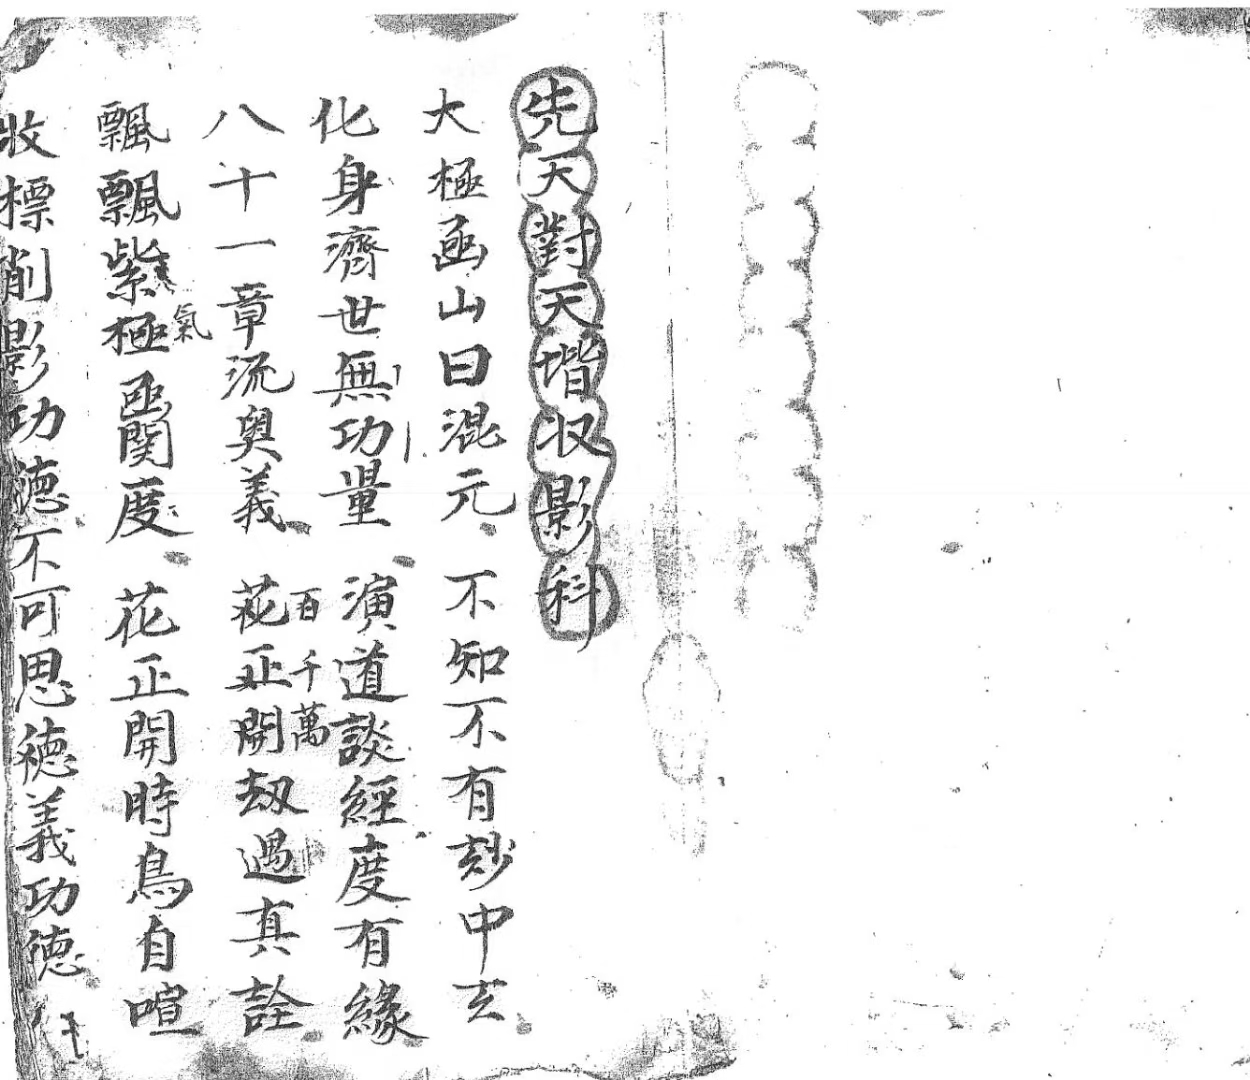 先天對天堦収影科
大極凾山曰混元不知不有玅中玄
化身濟世無功量演道談經度有緣
八十一章流奥義花正開劫遇真詮
百千萬
飄飄紫極凾関度花正開時鳥自喧
氣
收標削影功德不可思德義功德